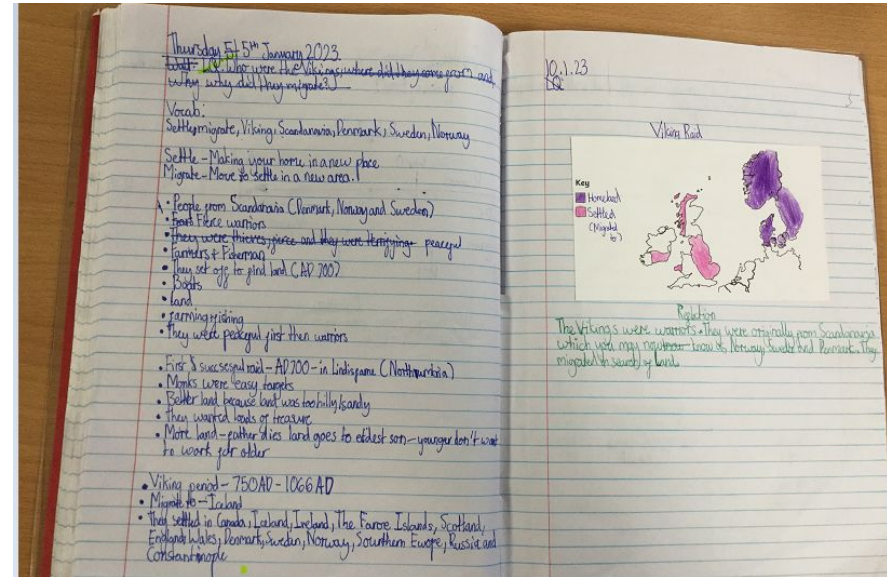 Thursday 5th January 2023
LQ: Who were the Vikings, where did they come from and
why did they migrate?
Vocab:
Settle, migrate, Viking, Scandanavia, Denmark, Sweden, Norway
Settle - Making your home in a new place
Migrate - Move to settle in a new area.
• People from Scandanavia (Denmark, Norway and Sweden)
• Fierce warriors
• They were thieves, fierce and they were terrifying peaceful
• Farmers & Fisherman
• They set off to find land (AD 700)
• Boats
• Land
• farming/fishing
• They were peaceful first then warriors
• First succsesful raid - AD 700 - in Lindisfarne (Northumbria)
• Monks were easy targets
• Better land because land was too hilly/sandy
• They wanted loads of treasure
• More land - father dies land goes to eldest son - younger don't want
to work for older
• Viking period - 750AD - 1066AD
• Migrate to - Iceland
• They settled in Canada, Iceland, Ireland, The Faroe Islands, Scotland,
England, Wales, Denmark, Sweden, Norway, Southern Europe, Russia and
Constantinople
10.1.23
Viking Raid
Key
Homeland
Settled
(Migrated
to)
The Vikings were warriors. They were originally from Scandanavia
which you may know as Norway, Sweden and Denmark. They
migrated in search of land.